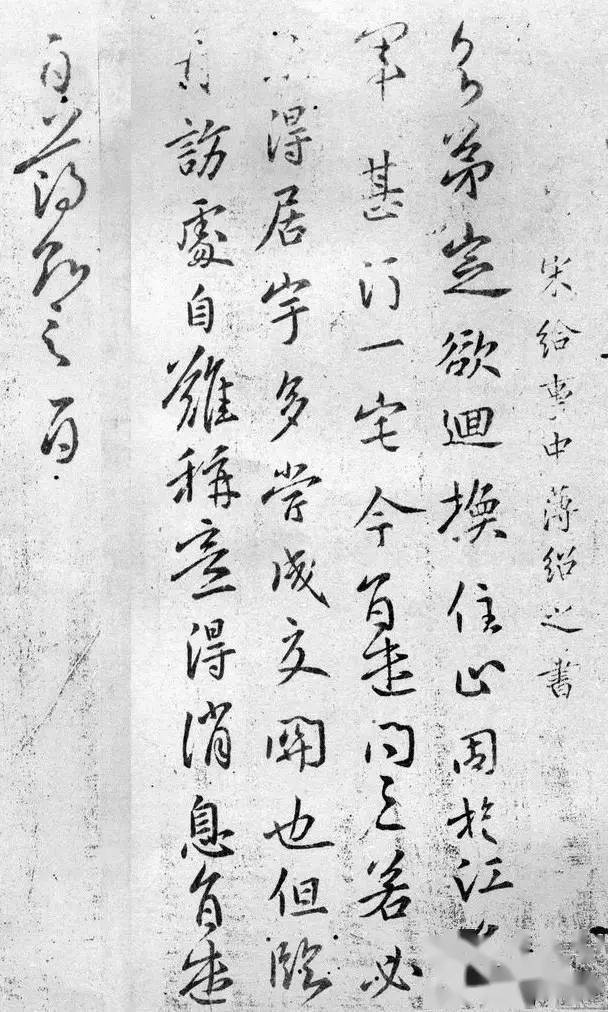 宋給事中薄紹之書
弟定欲迴換住止因於江
軍甚訂一宅今旨遣問之若必
得居宇多嘗成交關也但臨
訪處自難稱意得消息旨遣
白薄紹之白